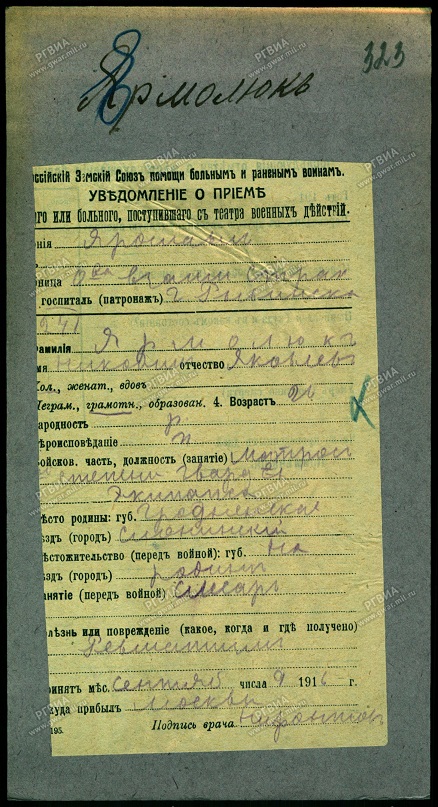 323
Ярмолюкъ
оссійскій Земскій Союзъ помощи больнымъ и раненымъ воинамъ.
УВѢДОМЛЕНІЕ О ПРІЕМѢ
ого или больного, поступившаго съ театра военныхъ дѣйствій.
нія
ница
госпиталь (патронажъ) г.
Фамилія Ярмолюкъ
мя отчество Яковлев
Хол., женат., вдовъ
Неграм., грамотн., образован. 4. Возрастъ 26
народность р
вѣроисповѣданіе п
Войсков. часть, должность (занятіе) Матрос
Гвард
Экипажа
Мѣсто родины: губ. Гродненская
ѣздъ (городъ) Слонимскій
мѣстожительство (передъ войной): губ. На
ѣздъ (городъ) родинѣ
занятіе (передъ войной) Слесарь
Болѣзнь или поврежденіе (какое, когда и гдѣ получено)
Ревматизмъ
ринятъ мѣс. сентяб числа 9 1916 г.
куда прибылъ Москвы
195. Подпись врача
РГВИА
www.gwar.mil.ru